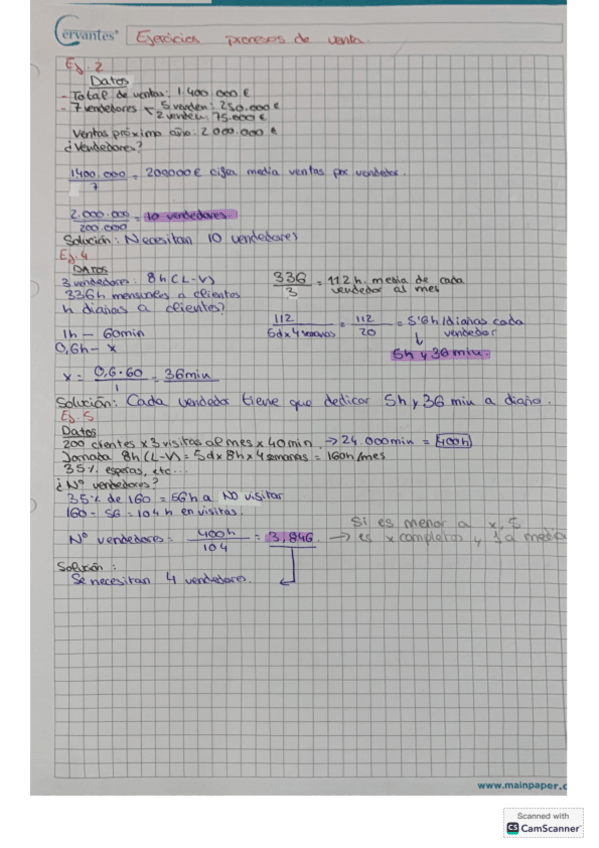 Cervantes
Ejercicios procesos de venta.
Ej. 2
Datos
- Total de ventas: 1.400.000 €
- 7 vendedores 5 venden: 250.000 €
2 venden: 75.000 €
Ventas próximo año: 2.000.000 €
¿Vendedores?
1400.000 / 7 = 200000 € cifra media ventas por vendedor.
2.000.000 / 200.000 = 10 vendedores.
Solución: Necesitan 10 vendedores
Ej. 4
DATOS
3 vendedores: 8h (L-V)
336h mensuales a clientes
h diarias a clientes?
336 / 3 = 112 h. media de cada vendedor al mes
112 / 5d x 4 semanas = 112 / 20 = 5'6h/diarias cada vendedor
5h y 36 min.
1h — 60min
0,6h - x
x = 0,6 · 60 / 1 = 36min
Solución: Cada vendedor tiene que dedicar 5h y 36 min a diario.
Ej. 5
Datos
200 clientes x 3 visitas al mes x 40 min. → 24.000min = 400h
Jornada 8h (L-V) = 5d x 8h x 4 semanas = 160h/mes
35% esperas, etc...
¿Nº vendedores?
35% de 160 = 56h a NO visitar
160 - 56 = 104 h en visitas.
Nº vendedores = 400h / 104 = 3,846. → Si es menor a x,5 es x completos y 1 a media
Solución:
Se necesitan 4 vendedores.
www.mainpaper.c
Scanned with
CS CamScanner